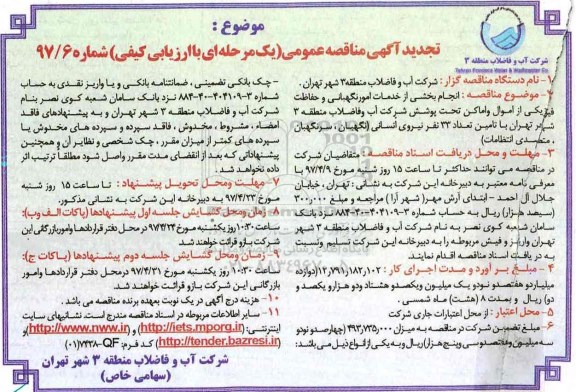 موضوع :
تجدید آگهی مناقصه عمومی (یک مرحله ای با ارزیابی کیفی) شماره ۹۷/۶
شرکت آب و فاضلاب منطقه ۳
Tehran Province Water & Wastewater Co.
۱- نام دستگاه مناقصه گزار : شرکت آب و فاضلاب منطقه۳ شهر تهران.
۲- موضوع مناقصه : انجام بخشی از خدمات امورنگهبانی و حفاظت
فیزیکی از اموال واماکن تحت پوشش شرکت آب وفاضلاب منطقه ۳
شهر تهران با تامین تعداد ۳۳ نفر نیروی انسانی (نگهبان ، سرنگهبان
، متصدی انتظامات)
۳- مهلت و محل دریافت اسناد مناقصه : متقاضیان شرکت
در مناقصه می توانند حداکثر تا ساعت ۱۵ روز شنبه مورخ ۹۷/۴/۹ با
معرفی نامه معتبر به دبیرخانه این شرکت به نشانی : تهران ، خیابان
جلال آل احمد - ابتدای آرش مهر( شهر آرا ) مراجعه و مبلغ ۳۰۰,۰۰۰
(سیصد هزار) ریال به حساب شماره ۳-۴۰۴۱۰۹-۴۰-۸۸۴ نزد بانک
سامان شعبه کوی نصر به نام شرکت آب و فاضلاب منطقه ۳ شهر
تهران واریز و فیش مربوطه را به دبیرخانه این شرکت تسلیم ونسبت
به دریافت اسناد مناقصه اقدام نمایند.
۴- مبلغ برآورد و مدت اجرای کار : ۱۲,۷۹۱,۱۸۲,۱۰۲(دوازده
میلیاردو هفتصدو نودو یک میلیون ویکصدو هشتاد ودو هزارو یکصد و
دو) ریال و بمدت ۸ (هشت) ماه شمسی.
۵- محل اعتبار : از محل اعتبارات جاری شرکت
۶- مبلغ تضمین شرکت در مناقصه به میزان ۴۹۳,۷۳۵,۰۰۰ (چهارصدو نودو
سه میلیون وهفتصدوسی وپنج هزار) ریال وبه یکی از انواع ذیل می باشد:
- چک بانکی تضمینی ، ضمانتنامه بانکی و یا واریز نقدی به حساب
شماره ۳-۴۰۴۱۰۹-۴۰-۸۸۴ نزد بانک سامان شعبه کوی نصر بنام
شرکت آب و فاضلاب منطقه ۳ شهر تهران و به پیشنهادهای فاقد
امضاء ، مشروط ، مخدوش ، فاقد سپرده و سپرده های مخدوش یا
سپرده های کمتر از میزان مقرر ، چک شخصی و نظایر آن و همچنین
پیشنهاداتی که بعد از انقضای مدت مقرر واصل شود مطلقاً ترتیب اثر
داده نخواهد شد.
۷- مهلت ومحل تحویل پیشنهاد : تا ساعت ۱۵ روز شنبه
مورخ ۹۷/۴/۲۳ به دبیرخانه این شرکت به نشانی مذکور.
۸- زمان ومحل گشایش جلسه اول پیشنهادها (پاکات الف وب):
ساعت ۱۰:۳۰ روز یکشنبه مورخ ۹۷/۴/۲۴ در محل دفتر قراردادها وامور بازرگانی این
شرکت باز و قرائت خواهند شد.
۹- زمان ومحل گشایش جلسه دوم پیشنهادها (پاکات ج):
ساعت ۱۰:۳۰ روز یکشنبه مورخ ۹۷/۴/۳۱ درمحل دفتر قراردادها وامور
بازرگانی این شرکت بازو قرائت خواهند شد.
۱۰- هزینه درج آگهی در یک نوبت بعهده برنده مناقصه می باشد .
۱۱- سایر اطلاعات مربوطه در اسناد مناقصه مندرج است. نشانیهای سایت
اینترنتی: (http://iets.mporg.ir) و (http://www.nww.ir) و
(http://tender.bazresi.ir) کد فرم: ۷۴۳۸-QF(۰۱)
شرکت آب و فاضلاب منطقه ۳ شهر تهران
(سهامی خاص)